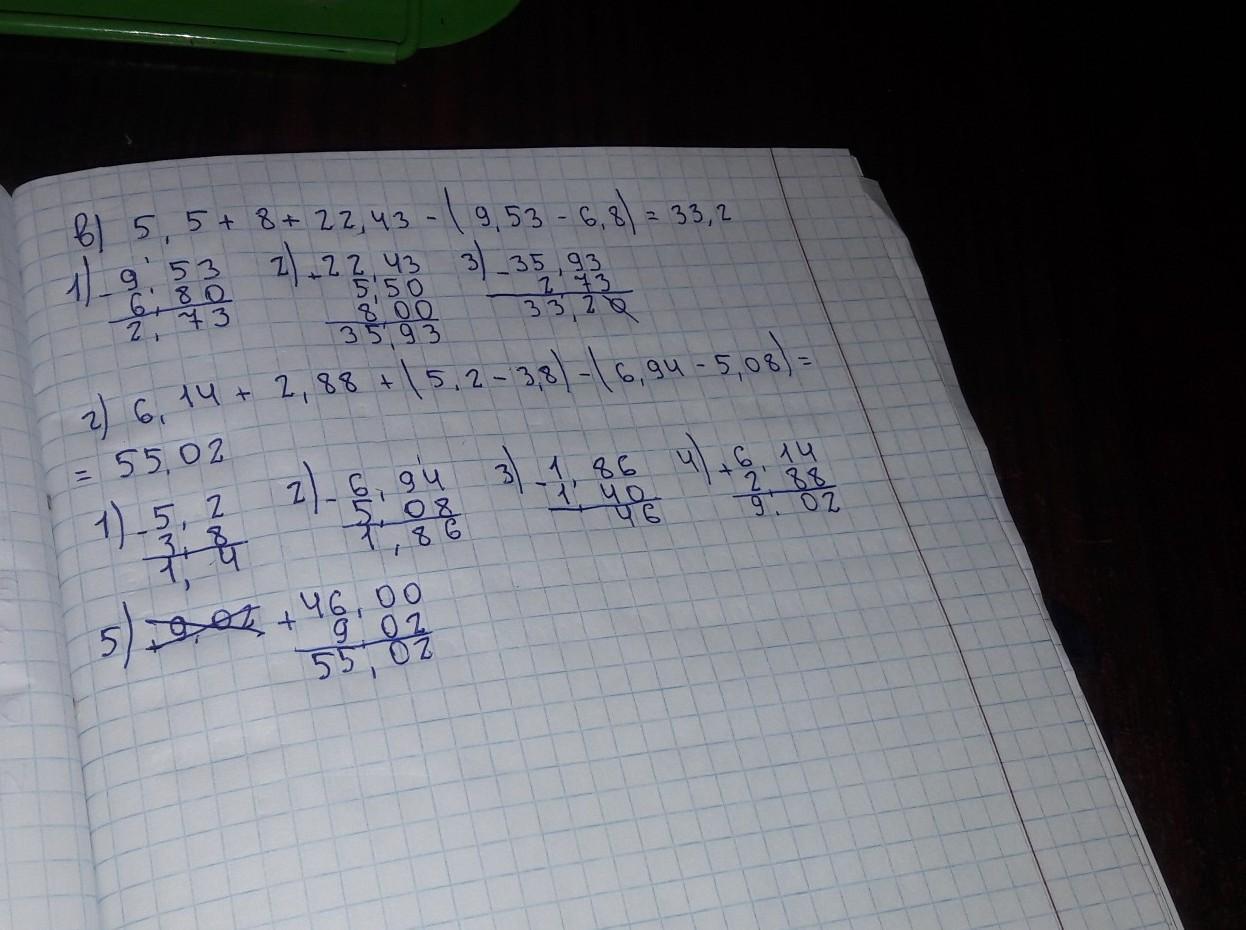 в) 5,5 + 8 + 22,43 - (9,53 - 6,8) = 33,2
1) - 9,53 2) + 22,43 3) - 35,93
6,80 5,50 2,73
2,73 8,00 33,20
35,93
г) 6,14 + 2,88 + (5,2 - 3,8) - (6,94 - 5,08) =
= 55,02
1) - 5,2 2) - 6,94 3) - 1,86 4) + 6,14
3,8 5,08 1,40 2,88
1,4 1,86 46 9,02
5) 9,02 + 46,00
9,02
55,02